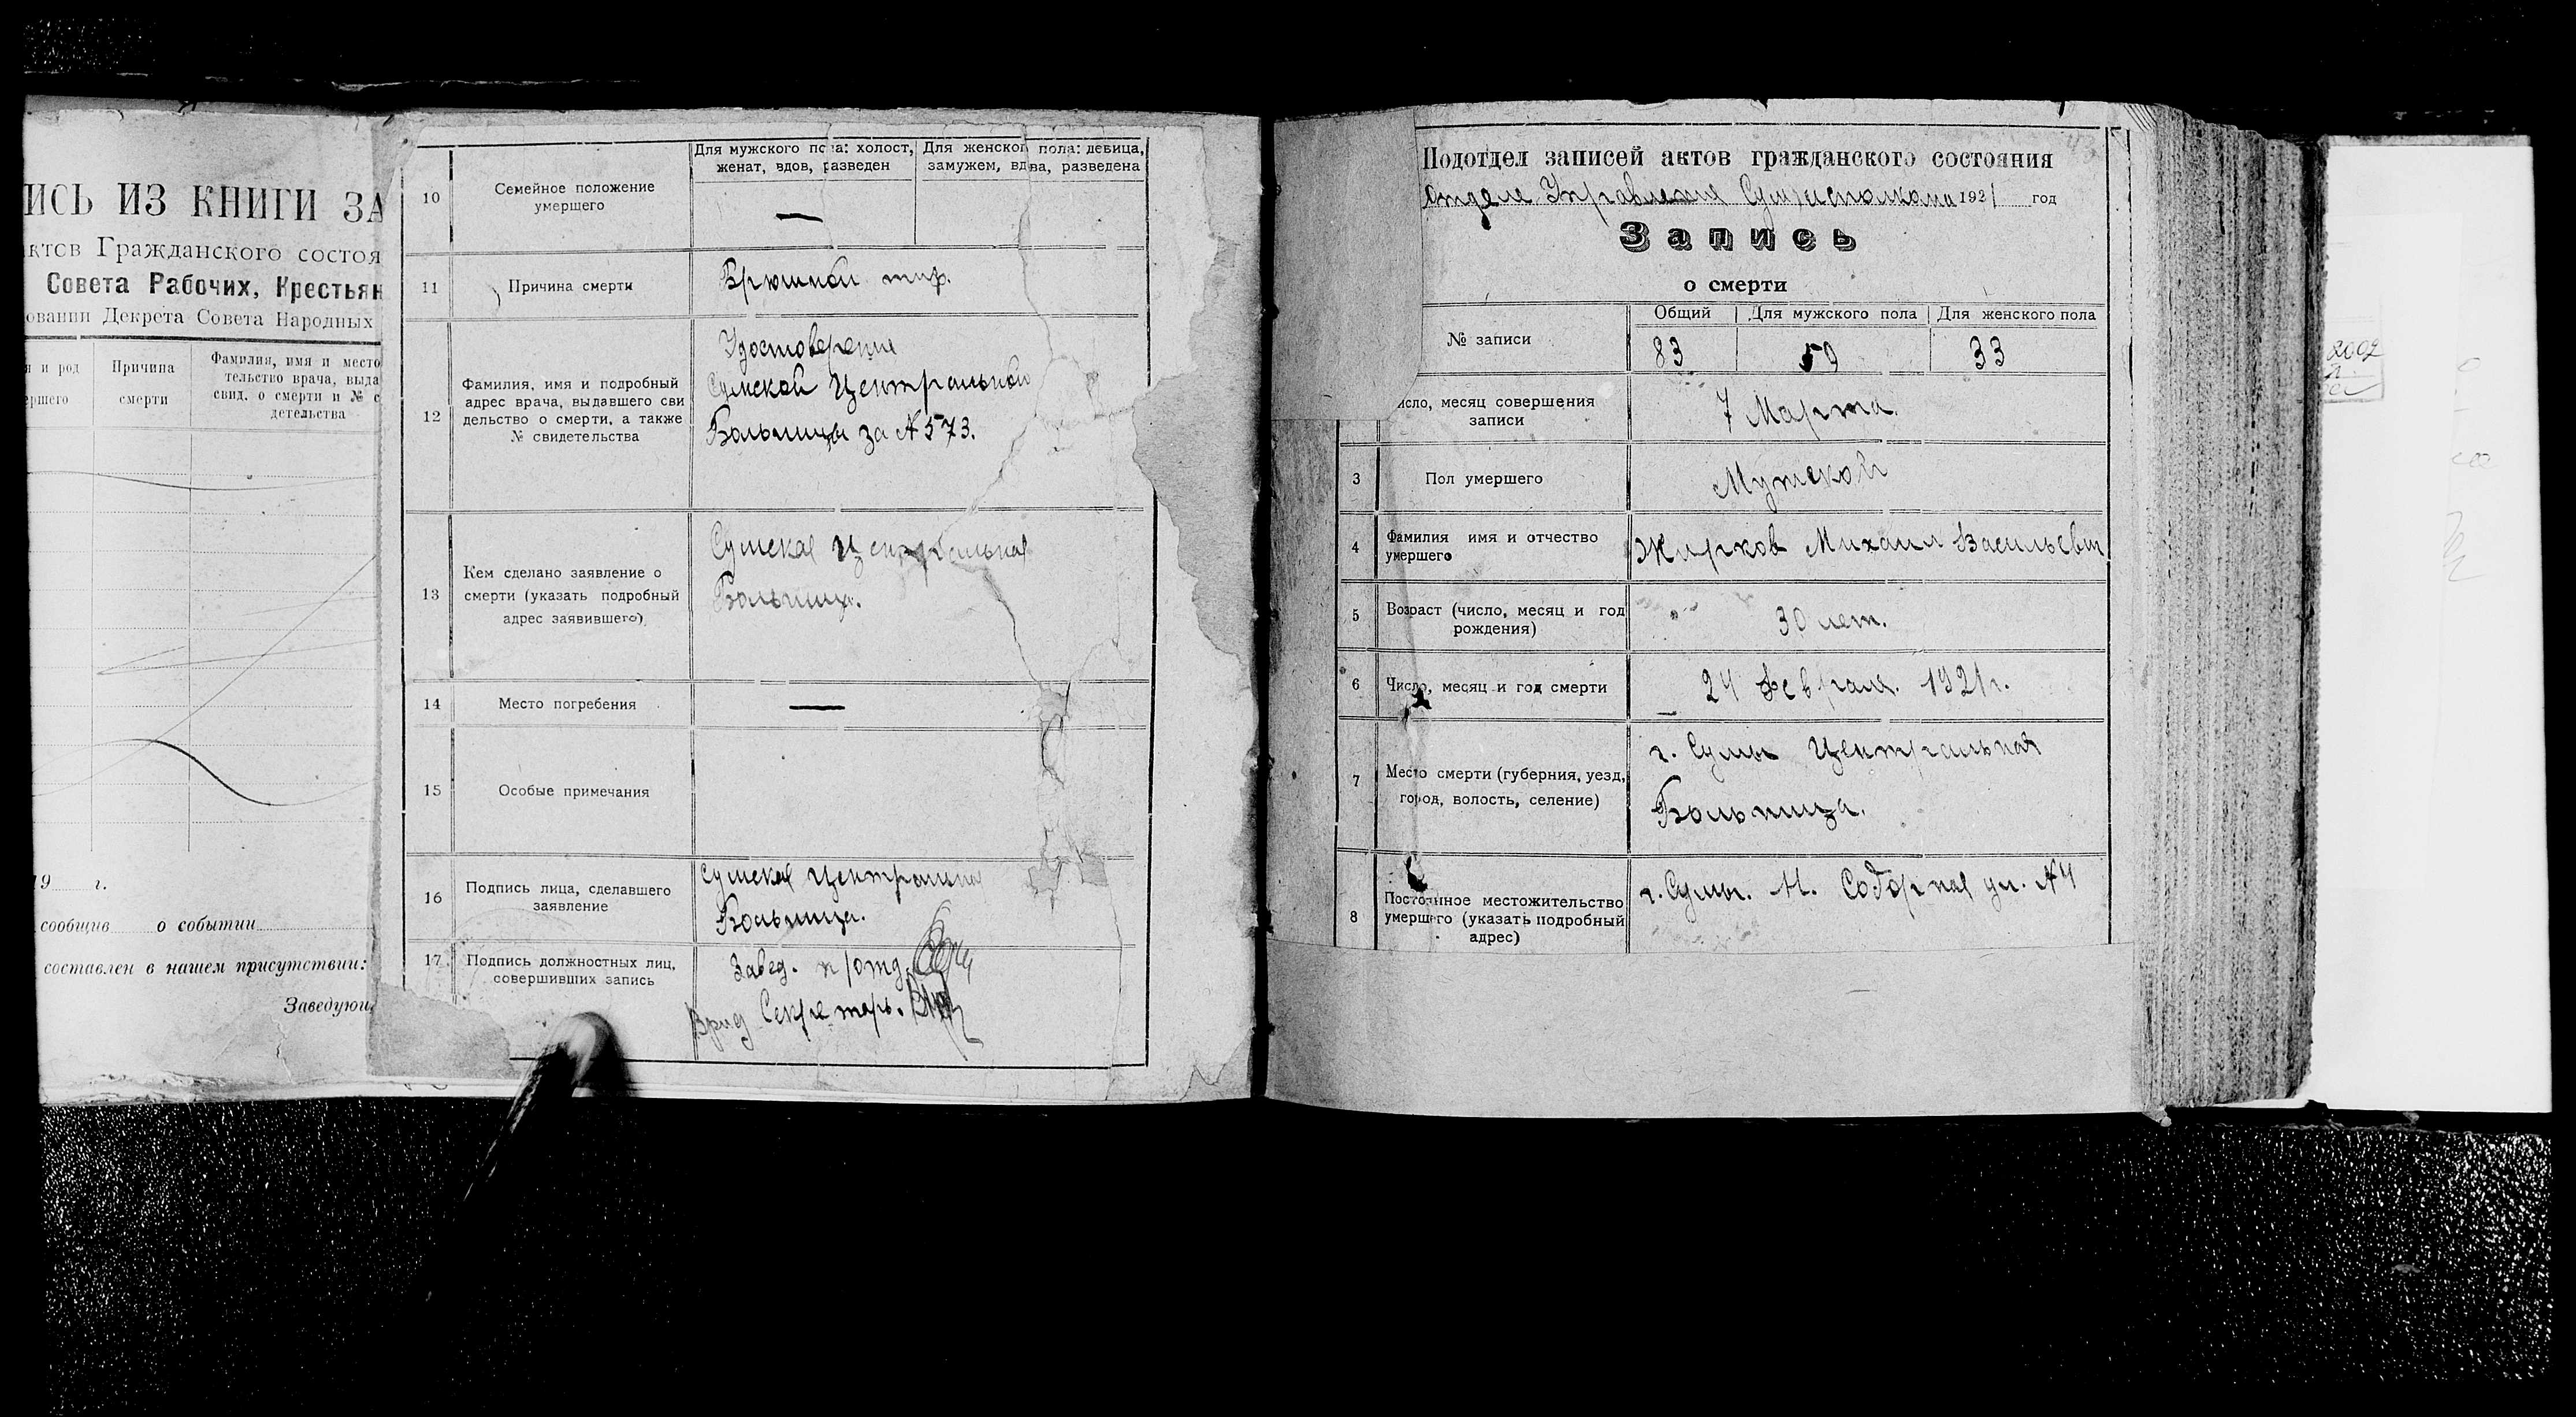 ИСЬ ИЗ КНИГИ ЗА
актов Гражданского состоя
Совета Рабочих, Крестьян
овании Декрета Совета Народных
я и род
ершего
Причина
смерти
Фамилия, имя и место
тельство врача, выда
свид. о смерти и № с
детельства
19 г.
сообщив о событии
составлен в нашем присутствии:
Заведующ
10
Семейное положение
умершего
Для мужского пола: холост,
женат, вдов, разведен
Для женского пола: девица,
замужем, вдова, разведена
—
11
Причина смерти
Брюшной тиф.
12
Фамилия, имя и подробный
адрес врача, выдавшего сви
дельство о смерти, а также
№ свидетельства
Удостоверение
Сумской Центральной
Больницы за № 573.
13
Кем сделано заявление о
смерти (указать подробный
адрес заявившего)
Сумская Центральная
Больница.
14
Место погребения
—
15
Особые примечания
16
Подпись лица, сделавшего
заявление
Сумская Центральная
Больница.
17
Подпись должностных лиц,
совершивших запись
Завед. п/отд.
Врид Секретарь.
Подотдел записей актов гражданского состояния
Отдела Управления Сумисполкома 1921 год
Запись
о смерти
№ записи
Общий
Для мужского пола
Для женского пола
83
59
33
исло, месяц совершения
записи
7 Марта.
3
Пол умершего
Мужской
4
Фамилия имя и отчество
умершего
Жирков Михаил Васильевич
5
Возраст (число, месяц и год
рождения)
30 лет.
6
Число, месяц и год смерти
24 Февраля. 1921 г.
7
Место смерти (губерния, уезд,
город, волость, селение)
г. Сумы Центральная
Больница.
8
Постоянное местожительство
умершего (указать подробный
адрес)
г. Сумы. М. Соборная ул. № 4
2002